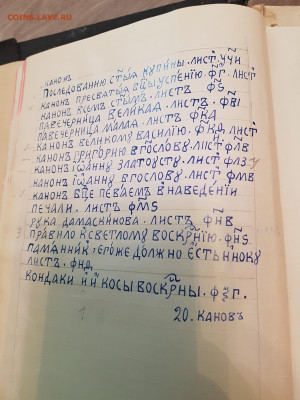 COINS.LAVE.RU
канонъ
Последованию ст҃ыѧ купины. лист. у҃чи
канонъ пресватыѧ бц҃ы успению. ф҃г. лист
канонъ всемъ ст҃ымъ. листъ ф҃ѕ
павечерница великаѧ. листъ. ф҃ві
павечерница малаѧ. листъ ф҃ка
канонъ великому василию. ф҃кд. лист
канонъ григорию б҃гослову. лист ф҃лв
канонъ іѡанну златоусту. лист ф҃лз
канонъ іѡанну б҃гослову. лист ф҃мв
канонъ бц҃е певаем в наведении
печали. листъ ф҃мѕ
рука дамаскинова. листъ ф҃нв
правило к светлому воскр҃нїю. ф҃нѕ
памѧнникъ, егоже должно есть иноку
листъ. ф҃нд
кондаки и икосы воскр҃ны. ф҃ѯг.
20. кановъ